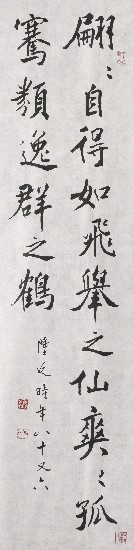 翩〻自得如飛舉之仙爽〻孤
騫類逸群之鶴
陸儼時年八十又六